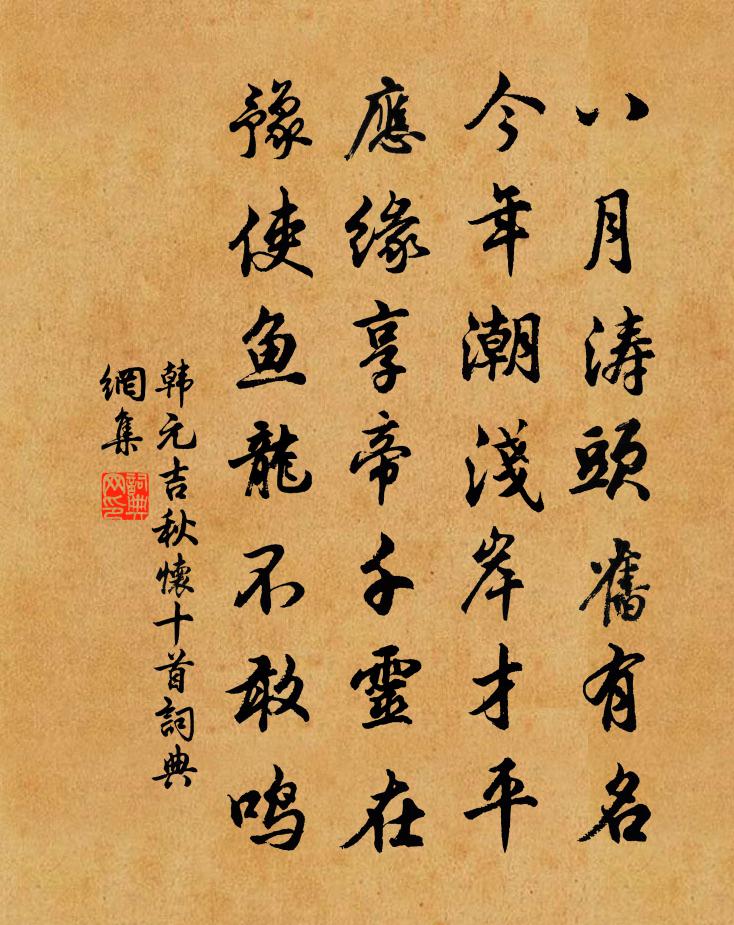 八月涛頭舊有名
今年潮淺岸才平
應緣享帝千靈在
豫使魚龍不敢鸣
韩元吉秋懷十首詞典
網集
詞典
网印